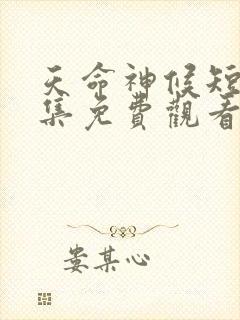 天命神候短
集免費觀看
婁某心